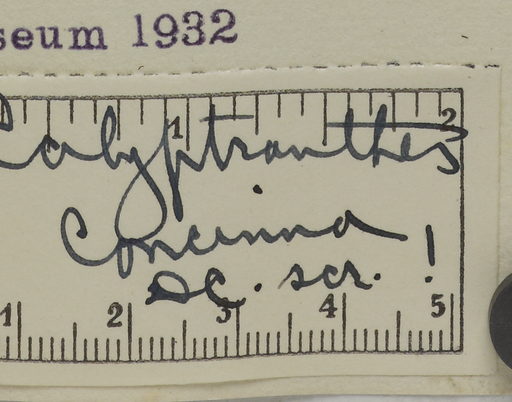 seum 1932
1 2
Calyptranthes
concinna
DC. scr. !
1 2 3 4 5